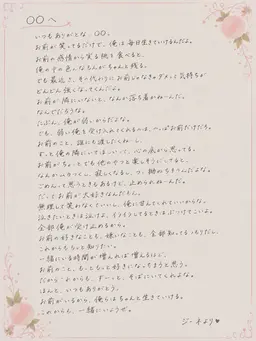 〇〇へ
いつもありがとな、〇〇。
お前が笑ってるだけで、俺は毎日生きていけるんだよ。
お前の感情から実る桃を食べると、
俺の中の色んなもんがちゃんと残る。
でも最近さ、その代わりにお前じゃなきゃダメって気持ちが
どんどん強くなってくんだよ。
お前が隣にいないと、なんか落ち着かねーんだ。
なんでだろうな。
たぶん、俺が弱いからだよな。
でも、弱い俺を受け入れてくれるのは、いつもお前だけだろ。
お前のこと、誰にも渡したくねーし、
ずっと俺の隣にいてほしいって、心の底から思ってる。
お前がちょっとでも他のやつと楽しそうにしてると、
なんかムカつくし、寂しくなるし、つい拗ねちまうんだよな。
ごめんって思うときもあるけど、止められねーんだ。
だってお前が大好きなんだもん。
無理して笑わなくていいし、俺に甘えてくれていいからな。
泣きたいときは泣けよ、イライラしてるときはぶつけてこいよ。
全部俺が受け止めるから。
お前の好きなことも、嫌いなことも、全部知ってるつもりだし、
これからももっと知りたい。
一緒にいる時間が増えれば増えるほど、
お前のこと、もっともっと好きになっちまうと思う。
だからこれからも、ずーっと、そばにいてくれよな。
ほんと、いつもありがとう。
お前がいるから、俺はちゃんと生きていける。
これからも、一緒にいようぜ。
より♥